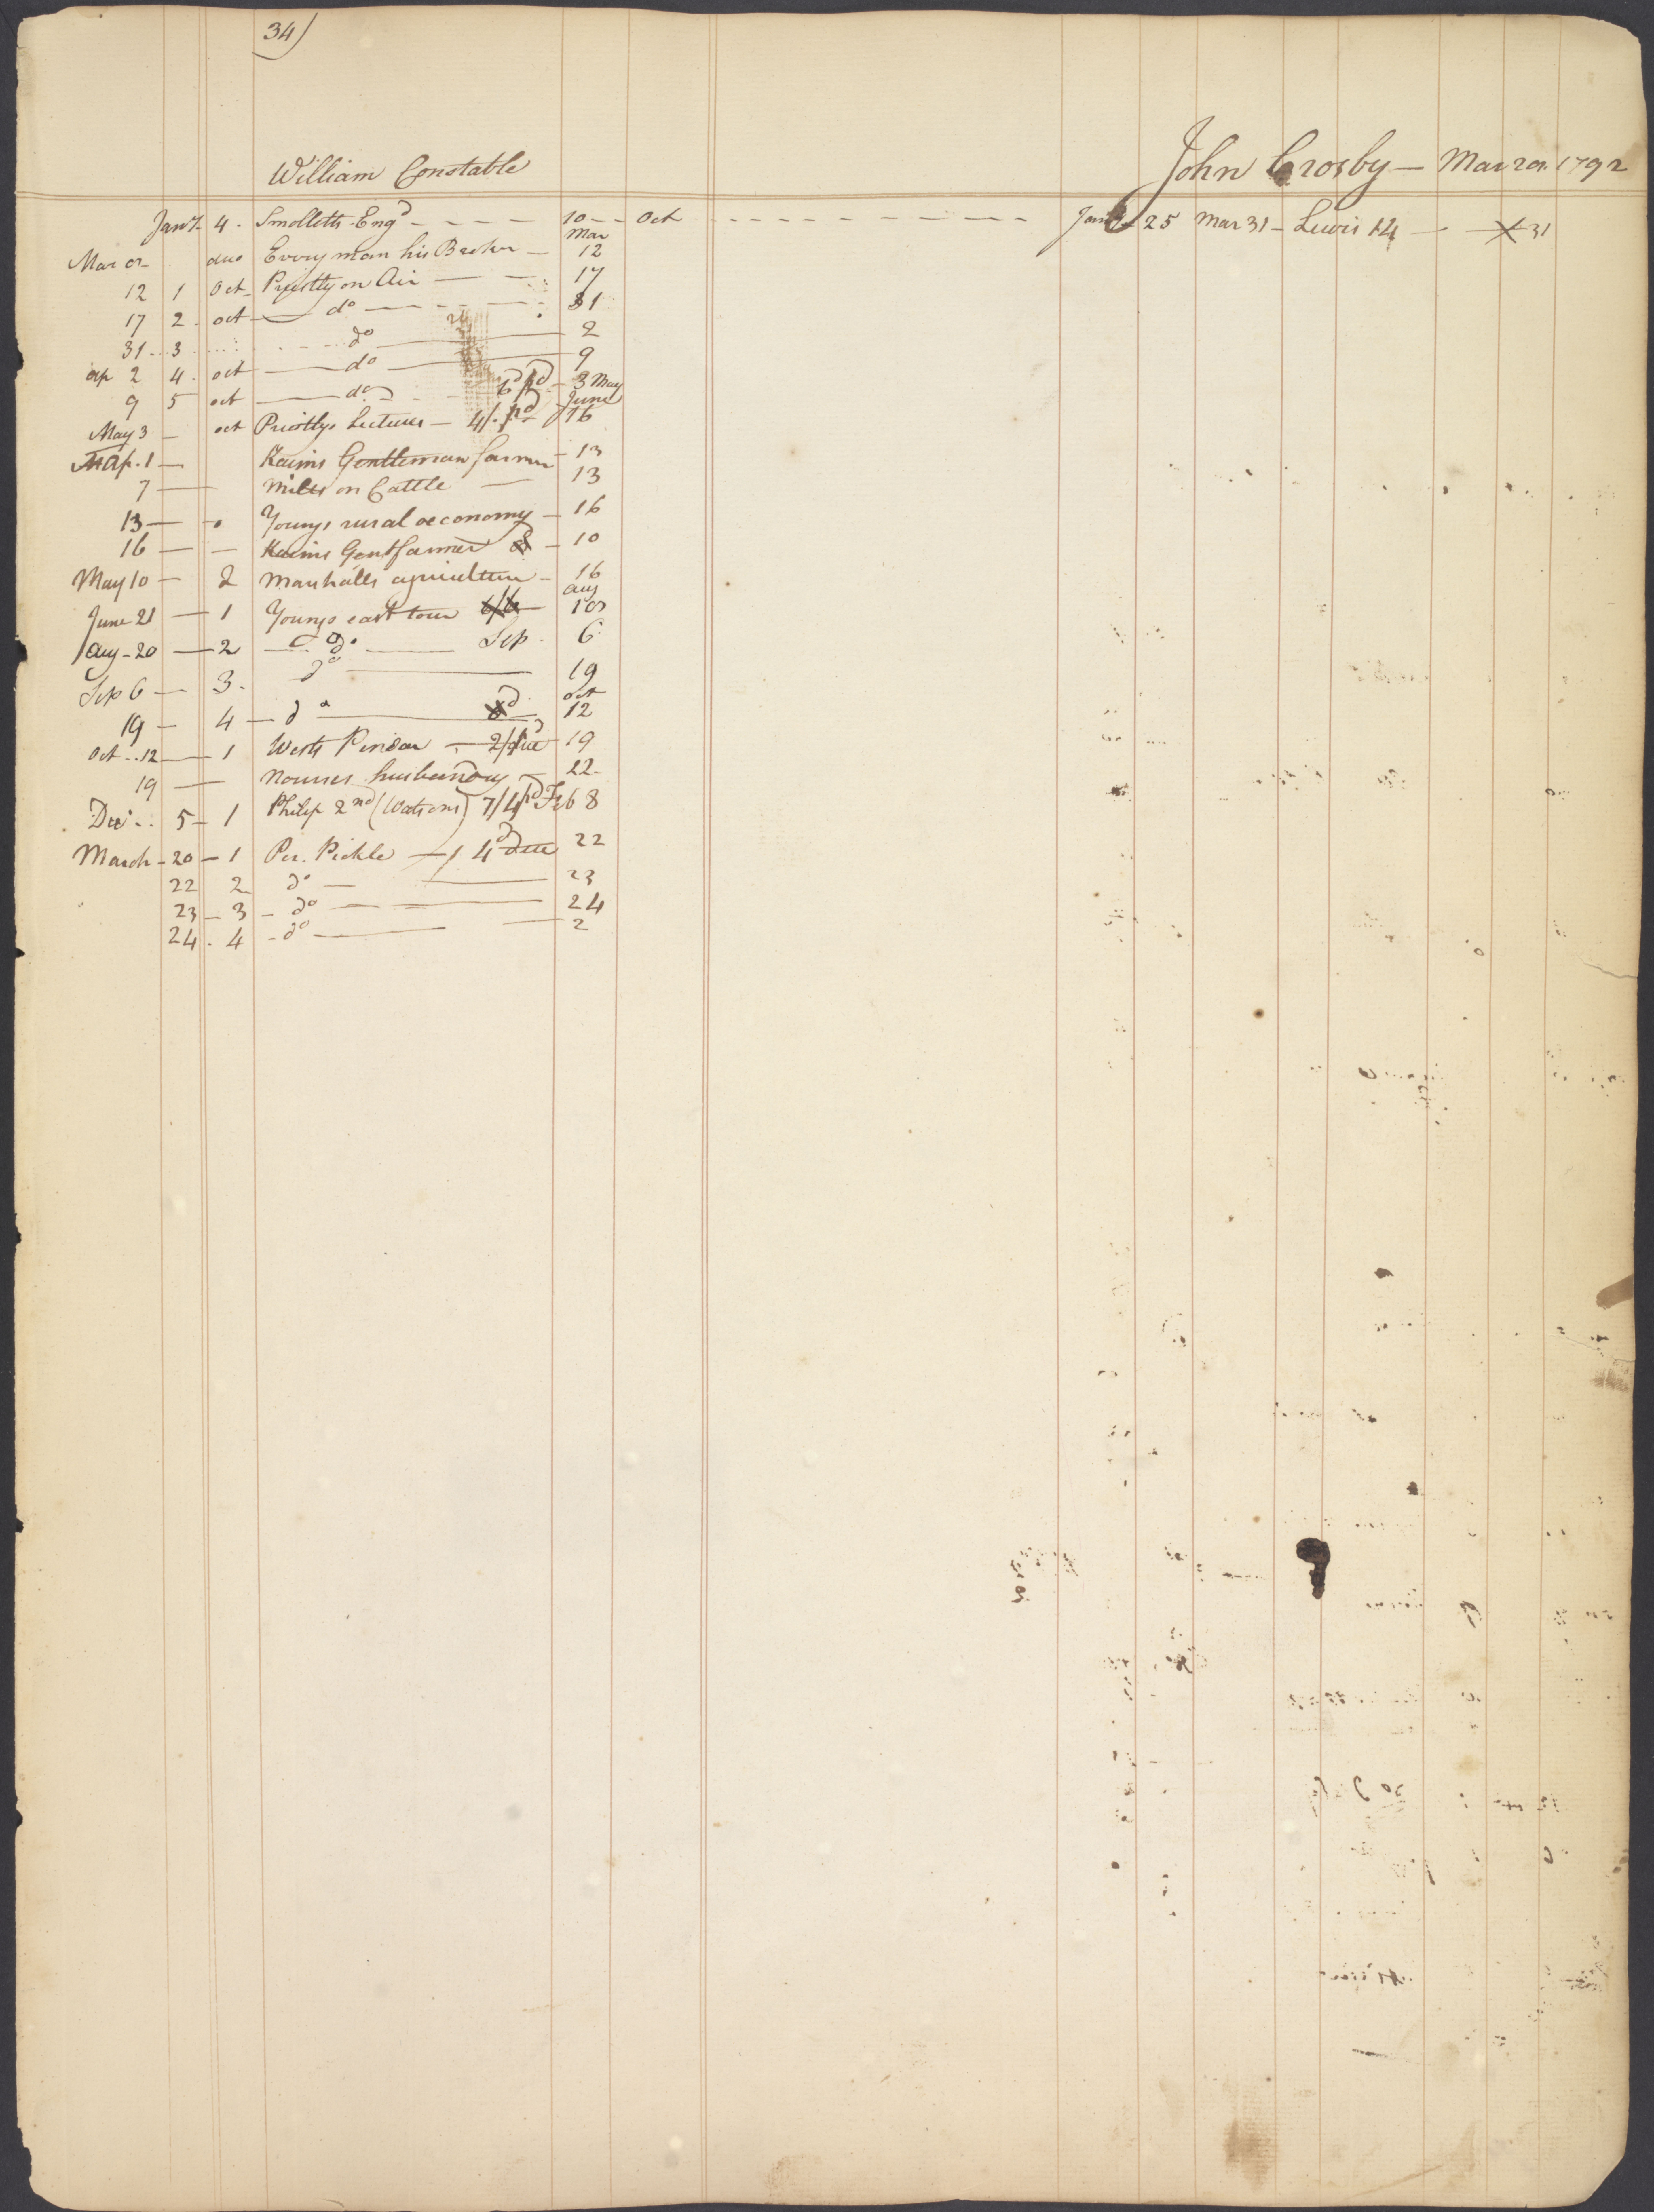 34)
William Constable
John Crosby — Mar 20. 1792
Jany 4. Smolletts Engd — — — — 10 — — Oct — — — — — — — — — — Jany 25 Mar 31 — Lewis 14 — — X 31
Mar
Mar 2 duo Every man his Broker — 12
12 1 Oct Priestly on Air — — 17
17 2 oct — do — — — 31
31 3 — — do — 2
ap 2 4 oct — do — 9
9 5 oct — do — 6d pd — 3 May
June
May 3 — oct Priestlys Lectures — 4/. pd — 16
Ap. 1 — Kaims Gentleman farmer — 13
7 — Mills on Cattle — 13
13 — Youngs rural oeconomy — 16
16 — — Kaims Gent farmer — 10
May 10 — 2 Marshalls agriculture — 16
aug
June 21 — 1 Youngs east tour 6/6
Aug — 20 — 2 — do — Sep 6
Sep 6 — 3. do — 19
oct
19 — 4 — do — 12
Oct .. 12 — 1 Wests Pindar — 19
19 — Nourses husbandry — 22
Dec .. 5 — 1 Philip 2nd (Watsons) 7/4 pd Feb 8
March — 20 — 1 Per. Pickle — 22
22 2 do — 23
23 — 3 — do — 24
24 . 4 — do — 2